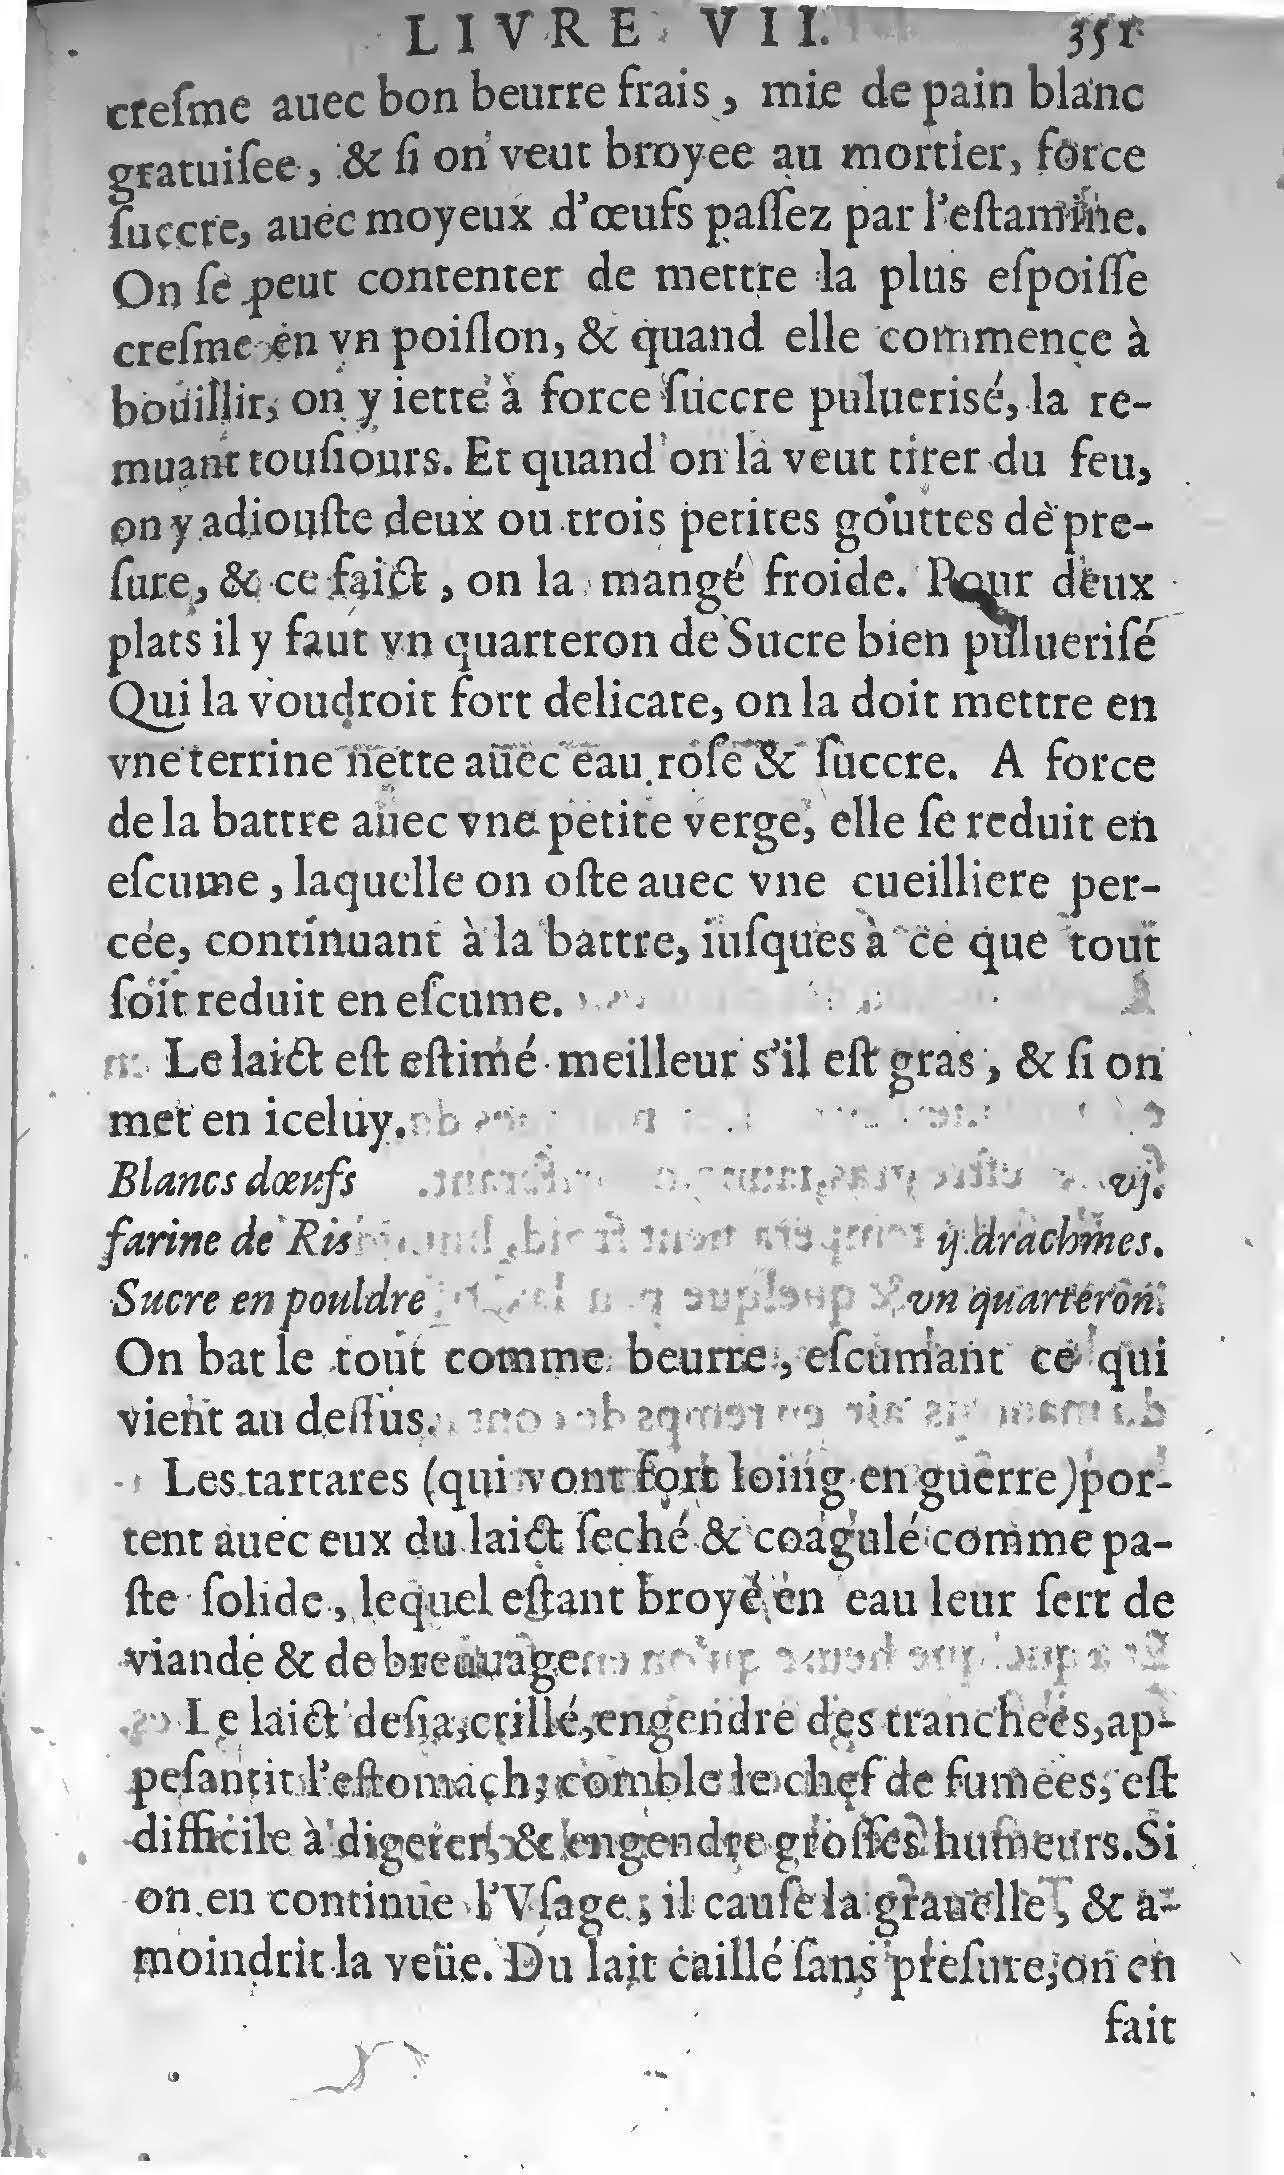 LIVRE VII. 351
cresme auec bon beurre frais, mie de pain blanc
gratuisee, & si on veut broyee au mortier, force
succre, auec moyeux d'œufs passez par l'estamine.
On se peut contenter de mettre la plus espoisse
cresme en vn poislon, & quand elle commence à
bouillir, on y iette à force succre puluerisé, la re-
muant tousiours. Et quand on la veut tirer du feu,
on y adiouste deux ou trois petites gouttes de pre-
sure, & ce faict, on la mangé froide. Pour deux
plats il y faut vn quarteron de Sucre bien puluerisé
Qui la voudroit fort delicate, on la doit mettre en
vne terrine nette auec eau rose & succre. A force
de la battre auec vne petite verge, elle se reduit en
escume, laquelle on oste auec vne cueilliere per-
cée, continuant à la battre, iusques à ce que tout
soit reduit en escume.
Le laict est estimé meilleur s'il est gras, & si on
met en iceluy.
Blancs dœufs vij.
farine de Ris ij. drachmes.
Sucre en pouldre vn quarteron.
On bat le tout comme beurre, escumant ce qui
vient au dessus.
Les tartares (qui vont fort loing en guerre) por-
tent auec eux du laict seché & coagulé comme pa-
ste solide, lequel estant broyé en eau leur sert de
viande & de breuuage.
Le laict desia crillé, engendre des tranchees, ap-
pesantit l'estomach, comble le chef de fumees, est
difficile à digerer, & engendre grosses humeurs. Si
on en continue l'Vsage, il cause la grauelle, & a-
moindrit la veüe. Du lait caillé sans presure, on en
fait